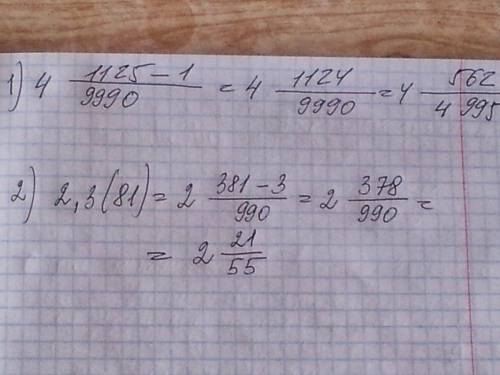 1) 4 1125-1/9990 = 4 1124/9990 = 4 562/4995
2) 2,3(81) = 2 381-3/990 = 2 378/990 =
= 2 21/55